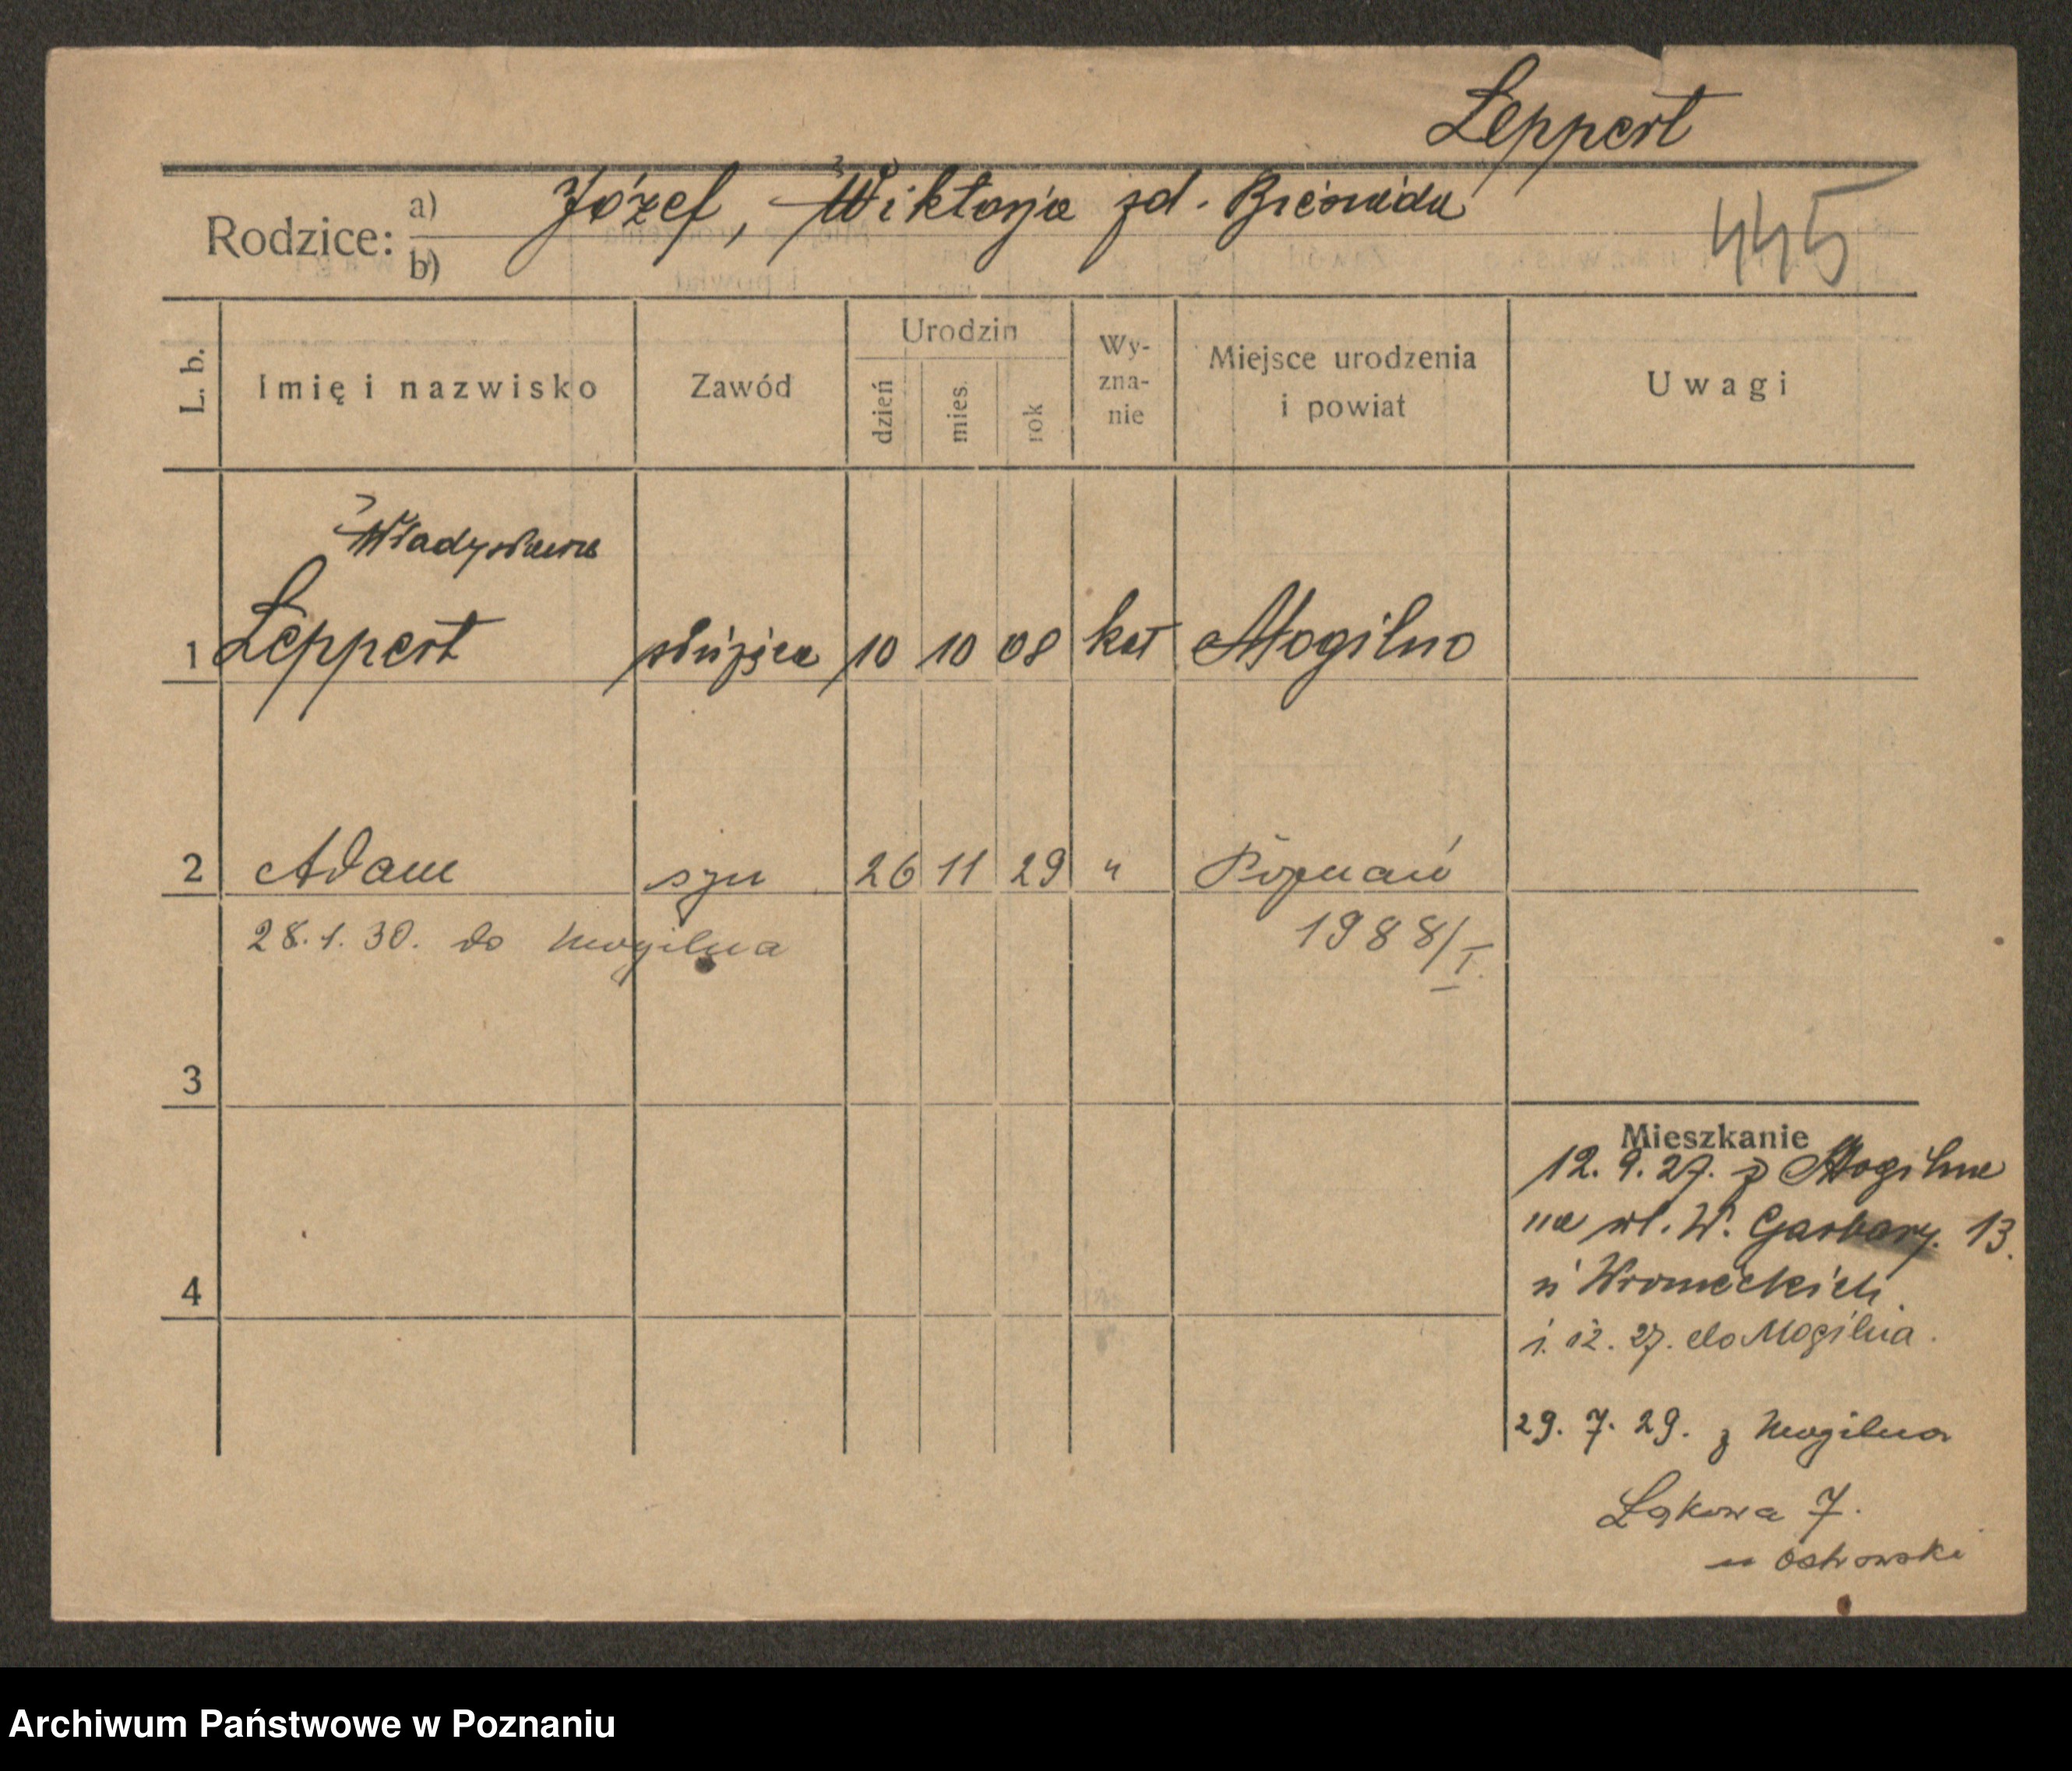 Leppert
Rodzice: a) Józef, Wiktorja zd.
b)
445
L. b.
Imię i nazwisko
Zawód
Urodzin
dzień
mies.
rok
Wy-
zna-
nie
Miejsce urodzenia
i powiat
Uwagi
Władysława
1 Leppert służąca 10 10 08 kat Mogilno
2 Adam syn 26 11 29 " Poznań
28.1.30. do Mogilna 1988/I.
3
4
Mieszkanie
12. 9. 27. z Mogilna
na ul. W. Garbary. 13.
u Wronieckich.
1. 12. 27. do Mogilna.
29. 7. 29. z Mogilna
Łąkowa 7.
u Ostrowski
Archiwum Państwowe w Poznaniu